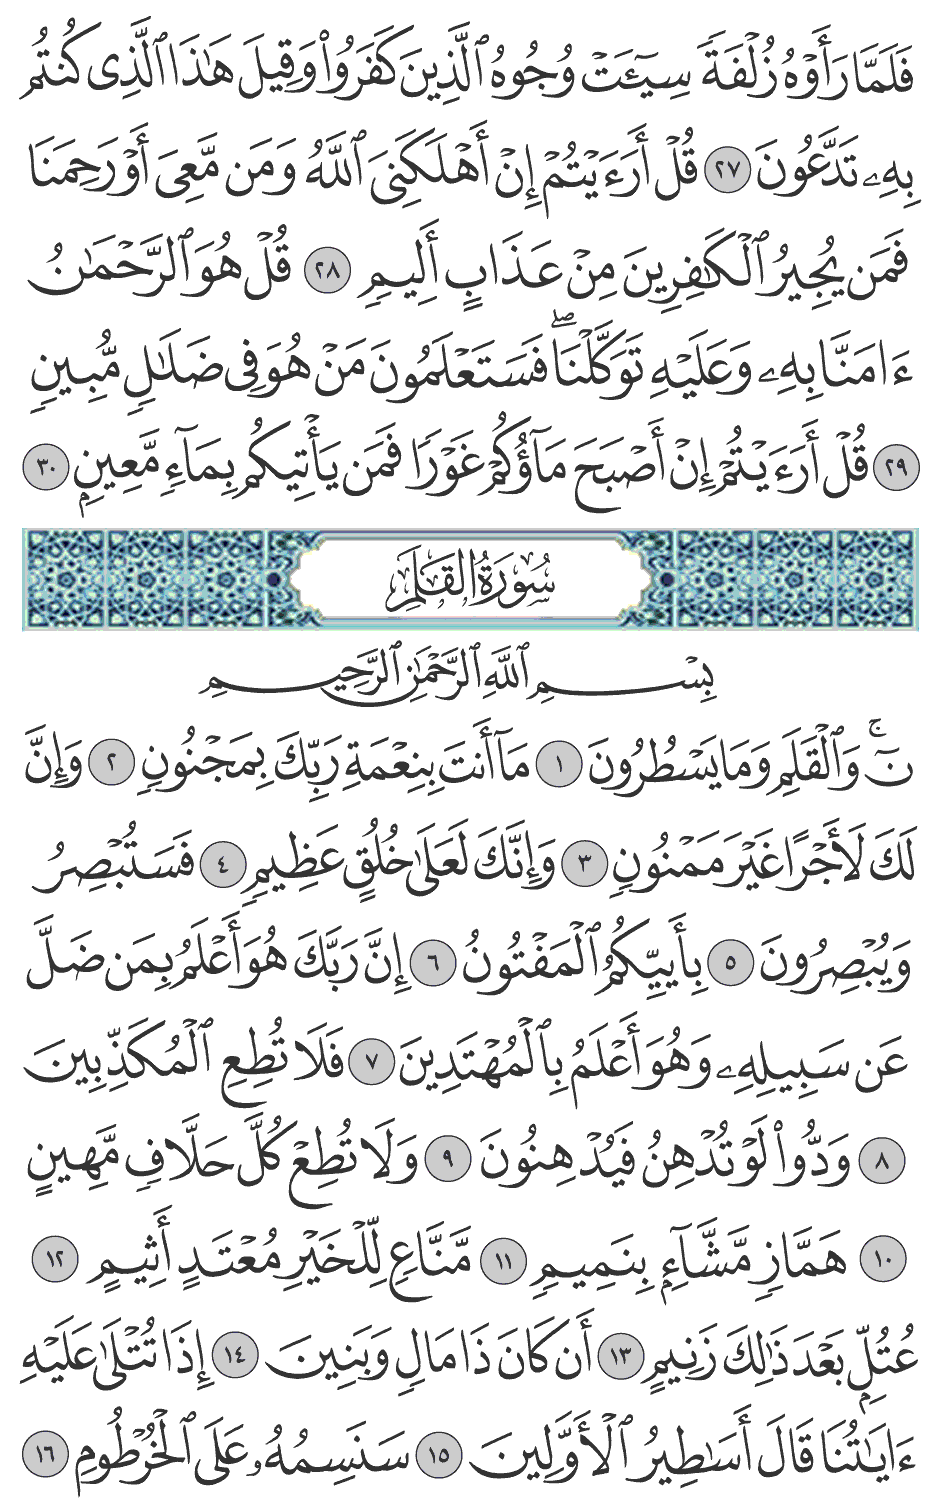 فَلَمَّا رَأَوۡهُ زُلۡفَةٗ سِيٓـَٔتۡ وُجُوهُ ٱلَّذِينَ كَفَرُواْ وَقِيلَ هَٰذَا ٱلَّذِي كُنتُم
بِهِۦ تَدَّعُونَ ٢٧ قُلۡ أَرَءَيۡتُمۡ إِنۡ أَهۡلَكَنِيَ ٱللَّهُ وَمَن مَّعِيَ أَوۡ رَحِمَنَا
فَمَن يُجِيرُ ٱلۡكَٰفِرِينَ مِنۡ عَذَابٍ أَلِيمٖ ٢٨ قُلۡ هُوَ ٱلرَّحۡمَٰنُ
ءَامَنَّا بِهِۦ وَعَلَيۡهِ تَوَكَّلۡنَاۖ فَسَتَعۡلَمُونَ مَنۡ هُوَ فِي ضَلَٰلٖ مُّبِينٖ
٢٩ قُلۡ أَرَءَيۡتُمۡ إِنۡ أَصۡبَحَ مَآؤُكُمۡ غَوۡرٗا فَمَن يَأۡتِيكُم بِمَآءٖ مَّعِينِۭ ٣٠
سُورَةُ ٱلۡقَلَمِ
بِسۡمِ ٱللَّهِ ٱلرَّحۡمَٰنِ ٱلرَّحِيمِ
نٓۚ وَٱلۡقَلَمِ وَمَا يَسۡطُرُونَ ١ مَآ أَنتَ بِنِعۡمَةِ رَبِّكَ بِمَجۡنُونٖ ٢ وَإِنَّ
لَكَ لَأَجۡرًا غَيۡرَ مَمۡنُونٖ ٣ وَإِنَّكَ لَعَلَىٰ خُلُقٍ عَظِيمٖ ٤ فَسَتُبۡصِرُ
وَيُبۡصِرُونَ ٥ بِأَييِّكُمُ ٱلۡمَفۡتُونُ ٦ إِنَّ رَبَّكَ هُوَ أَعۡلَمُ بِمَن ضَلَّ
عَن سَبِيلِهِۦ وَهُوَ أَعۡلَمُ بِٱلۡمُهۡتَدِينَ ٧ فَلَا تُطِعِ ٱلۡمُكَذِّبِينَ
٨ وَدُّواْ لَوۡ تُدۡهِنُ فَيُدۡهِنُونَ ٩ وَلَا تُطِعۡ كُلَّ حَلَّافٖ مَّهِينٍ
١٠ هَمَّازٖ مَّشَّآءِۭ بِنَمِيمٖ ١١ مَّنَّاعٖ لِّلۡخَيۡرِ مُعۡتَدٍ أَثِيمٍ ١٢
عُتُلِّۭ بَعۡدَ ذَٰلِكَ زَنِيمٍ ١٣ أَن كَانَ ذَا مَالٖ وَبَنِينَ ١٤ إِذَا تُتۡلَىٰ عَلَيۡهِ
ءَايَٰتُنَا قَالَ أَسَٰطِيرُ ٱلۡأَوَّلِينَ ١٥ سَنَسِمُهُۥ عَلَى ٱلۡخُرۡطُومِ ١٦